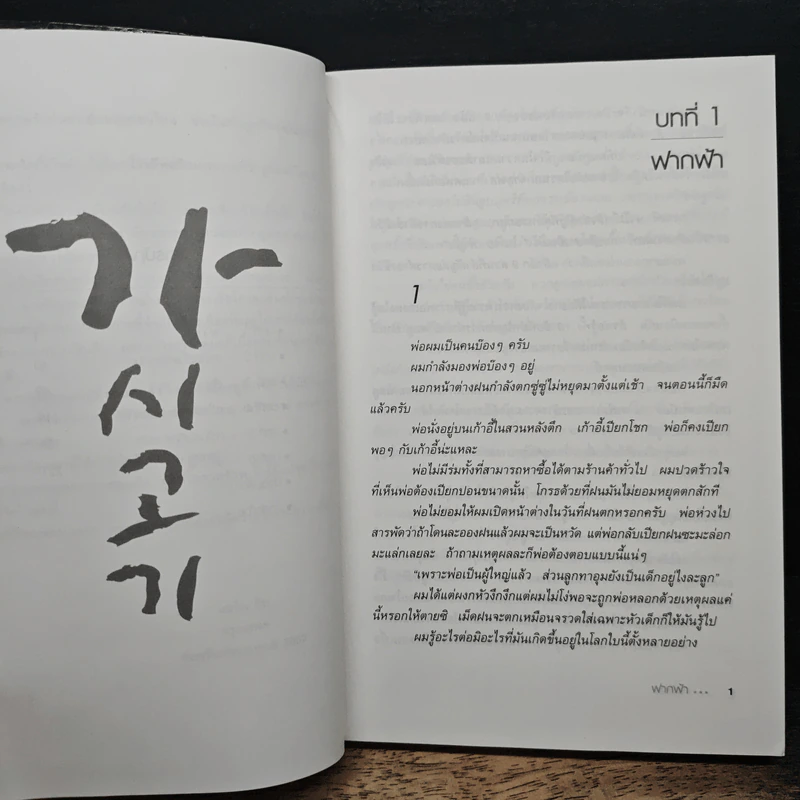 가
시
고
기
บทที่ 1
ฟากฟ้า
1
พ่อผมเป็นคนบ๊องๆ ครับ
ผมกำลังมองพ่อบ๊องๆ อยู่
นอกหน้าต่างฝนกำลังตกซู่ซู่ไม่หยุดมาตั้งแต่เช้า จนตอนนี้ก็มืด
แล้วครับ
พ่อนั่งอยู่บนเก้าอี้ในสวนหลังตึก เก้าอี้เปียกโชก พ่อก็คงเปียก
พอๆ กับเก้าอี้น่ะแหละ
พ่อไม่มีร่มทั้งที่สามารถหาซื้อได้ตามร้านค้าทั่วไป ผมปวดร้าวใจ
ที่เห็นพ่อต้องเปียกปอนขนาดนั้น โกรธด้วยที่ฝนมันไม่ยอมหยุดตกสักที
พ่อไม่ยอมให้ผมเปิดหน้าต่างในวันที่ฝนตกหรอกครับ พ่อห่วงไป
สารพัดว่าถ้าโดนละอองฝนแล้วผมจะเป็นหวัด แต่พ่อกลับเปียกฝนซะมะล่อก
มะแล่กเลยละ ถ้าถามเหตุผลละก็พ่อต้องตอบแบบนี้แน่ๆ
“เพราะพ่อเป็นผู้ใหญ่แล้ว ส่วนลูกทาอุมยังเป็นเด็กอยู่ไงละลูก”
ผมได้แต่ผงกหัวงึกงึกแต่ผมไม่โง่พอจะถูกพ่อหลอกด้วยเหตุผลแค่
นี้หรอกให้ตายซิ เม็ดฝนจะตกเหมือนจรวดใส่เฉพาะหัวเด็กก็ให้มันรู้ไป
ผมรู้อะไรต่อมิอะไรที่มันเกิดขึ้นอยู่ในโลกใบนี้ตั้งหลายอย่าง
ฟากฟ้า ... 1